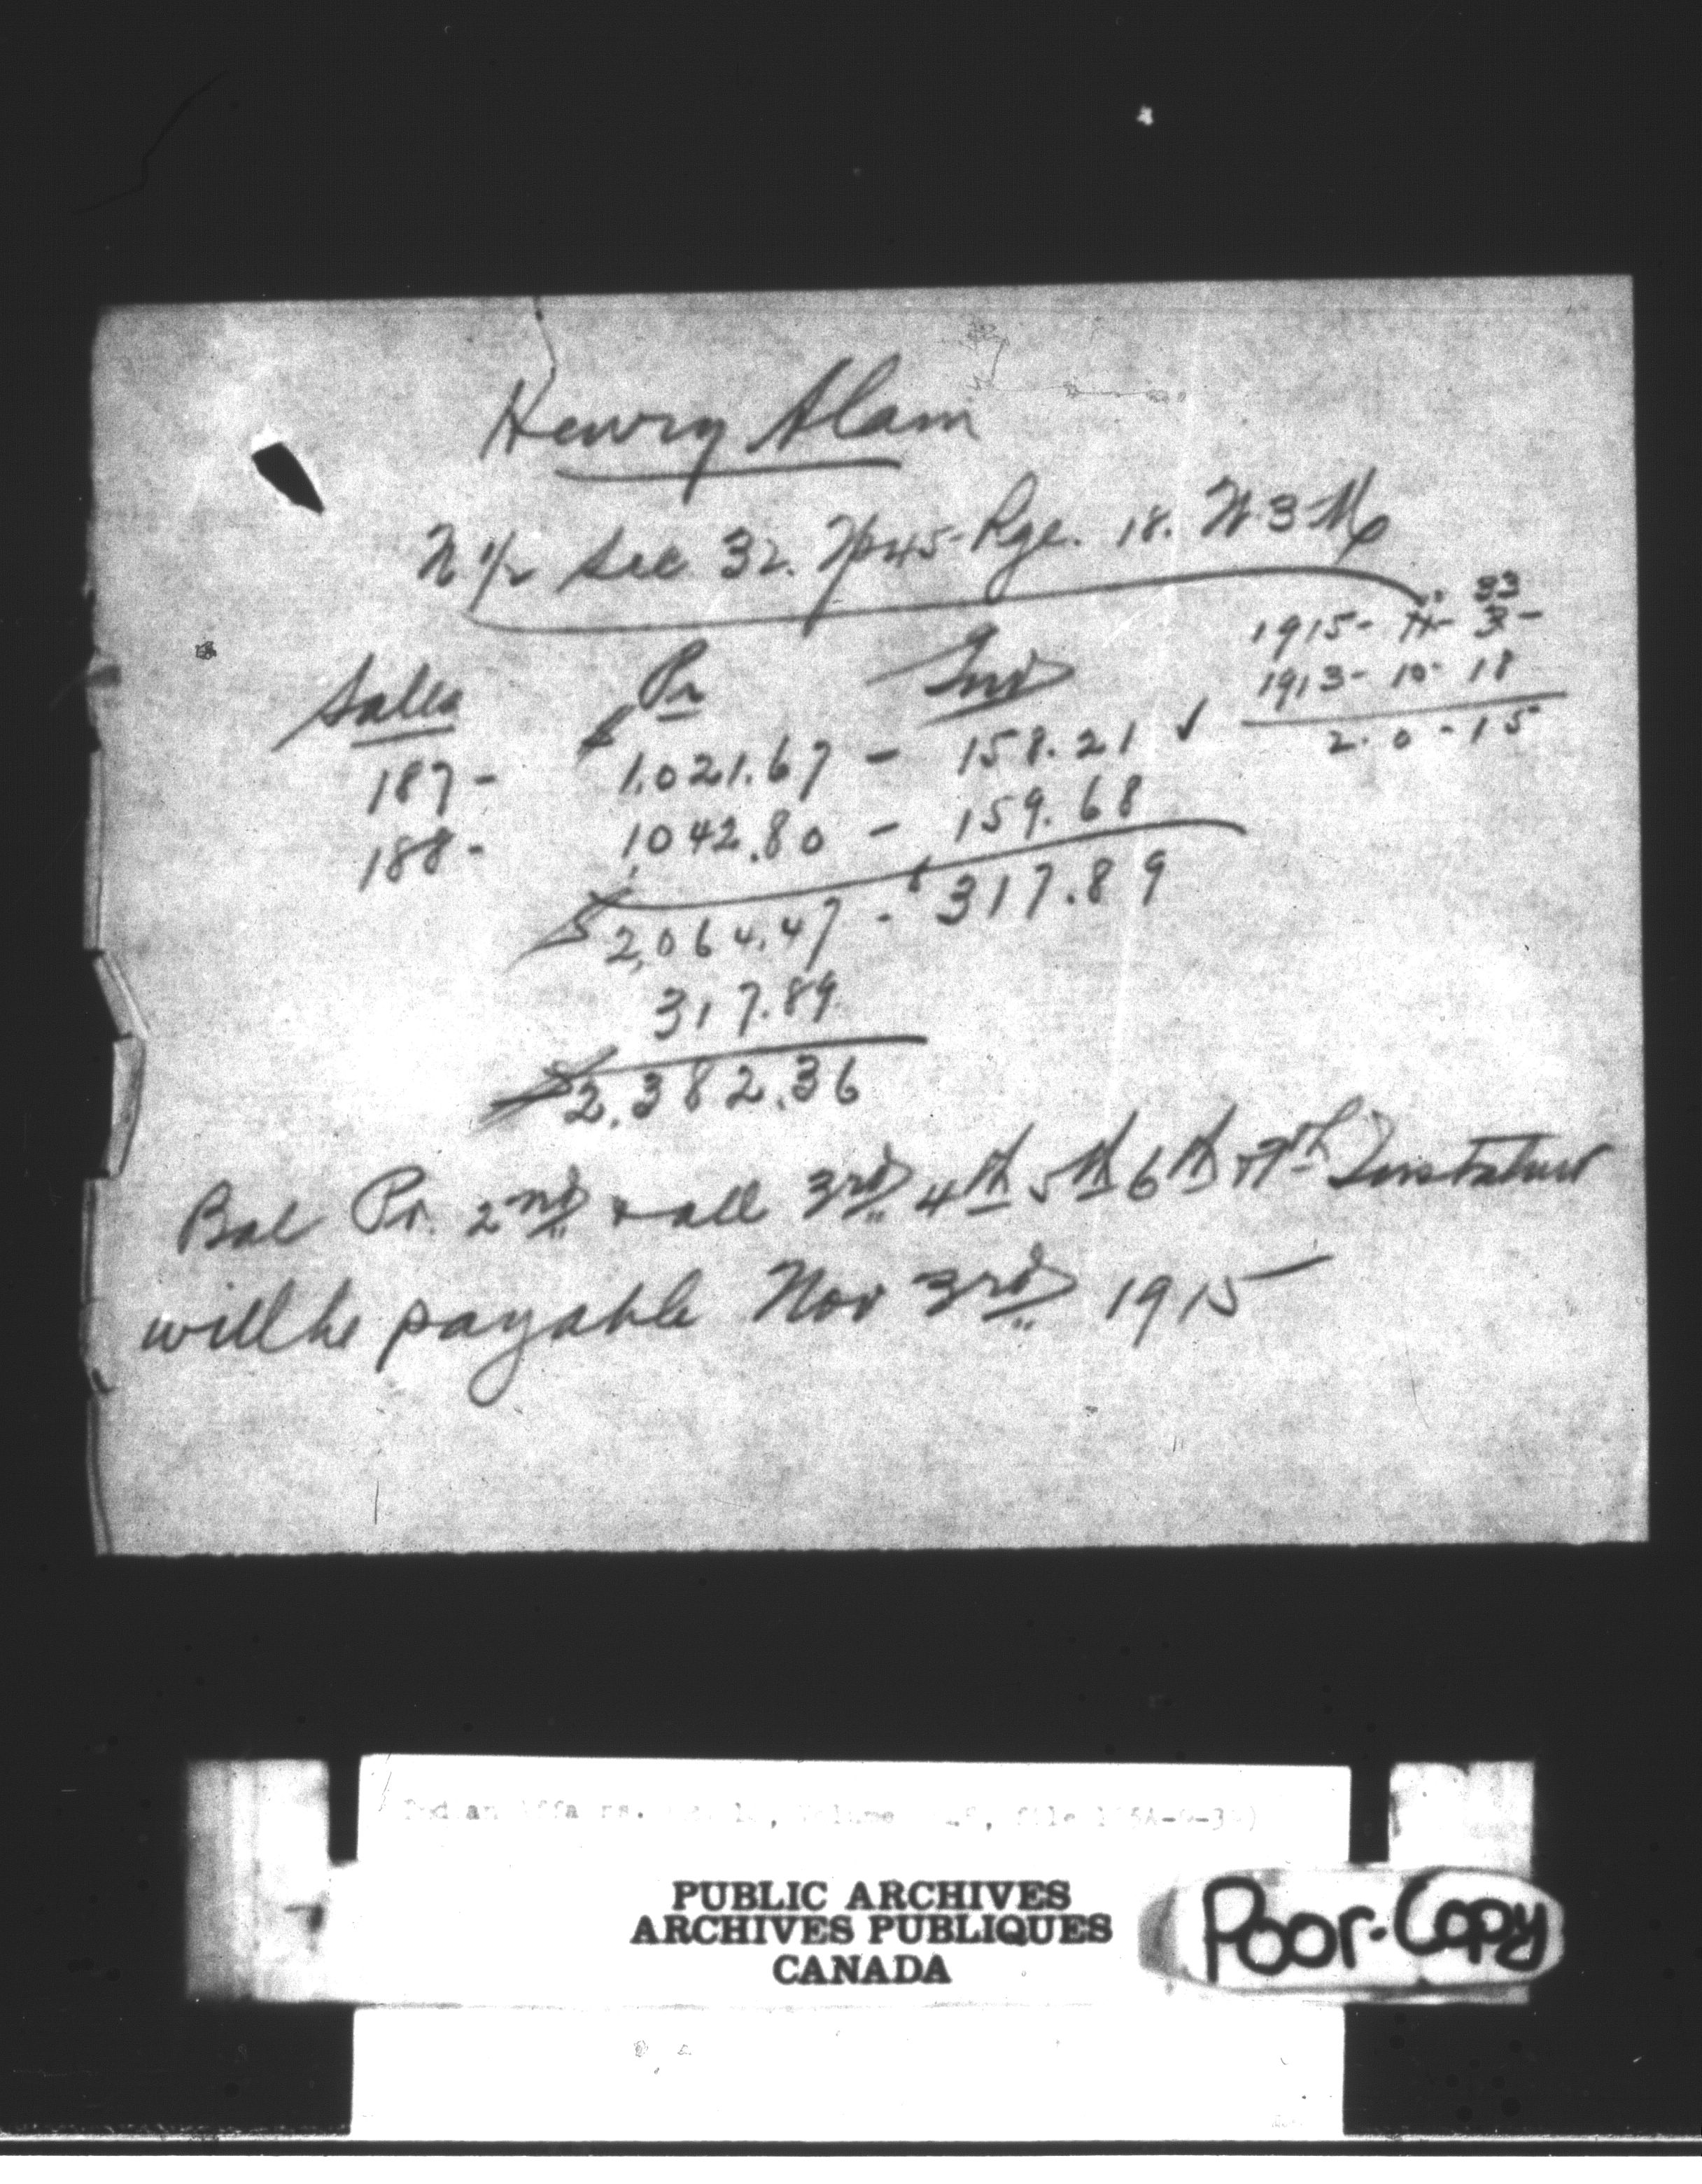 Henry Alam
N 1/2 Sec 32. Tp 45- Rge. 18. W 3 M
1915- 11- 3- 33
1913- 10- 18
2. 0 - 15
Sales Pr Int
187 - $ 1,021.67 - 158.21 ✓
188 - 1,042.80 - 159.68
$ 2,064.47 - $ 317.89
317.89
$ 2,382.36
Bal Pr. 2nd & all 3rd 4th 5th 6th & 7th
will be payable Nov 3rd 1915
PUBLIC ARCHIVES
ARCHIVES PUBLIQUES
CANADA
Poor-Copy